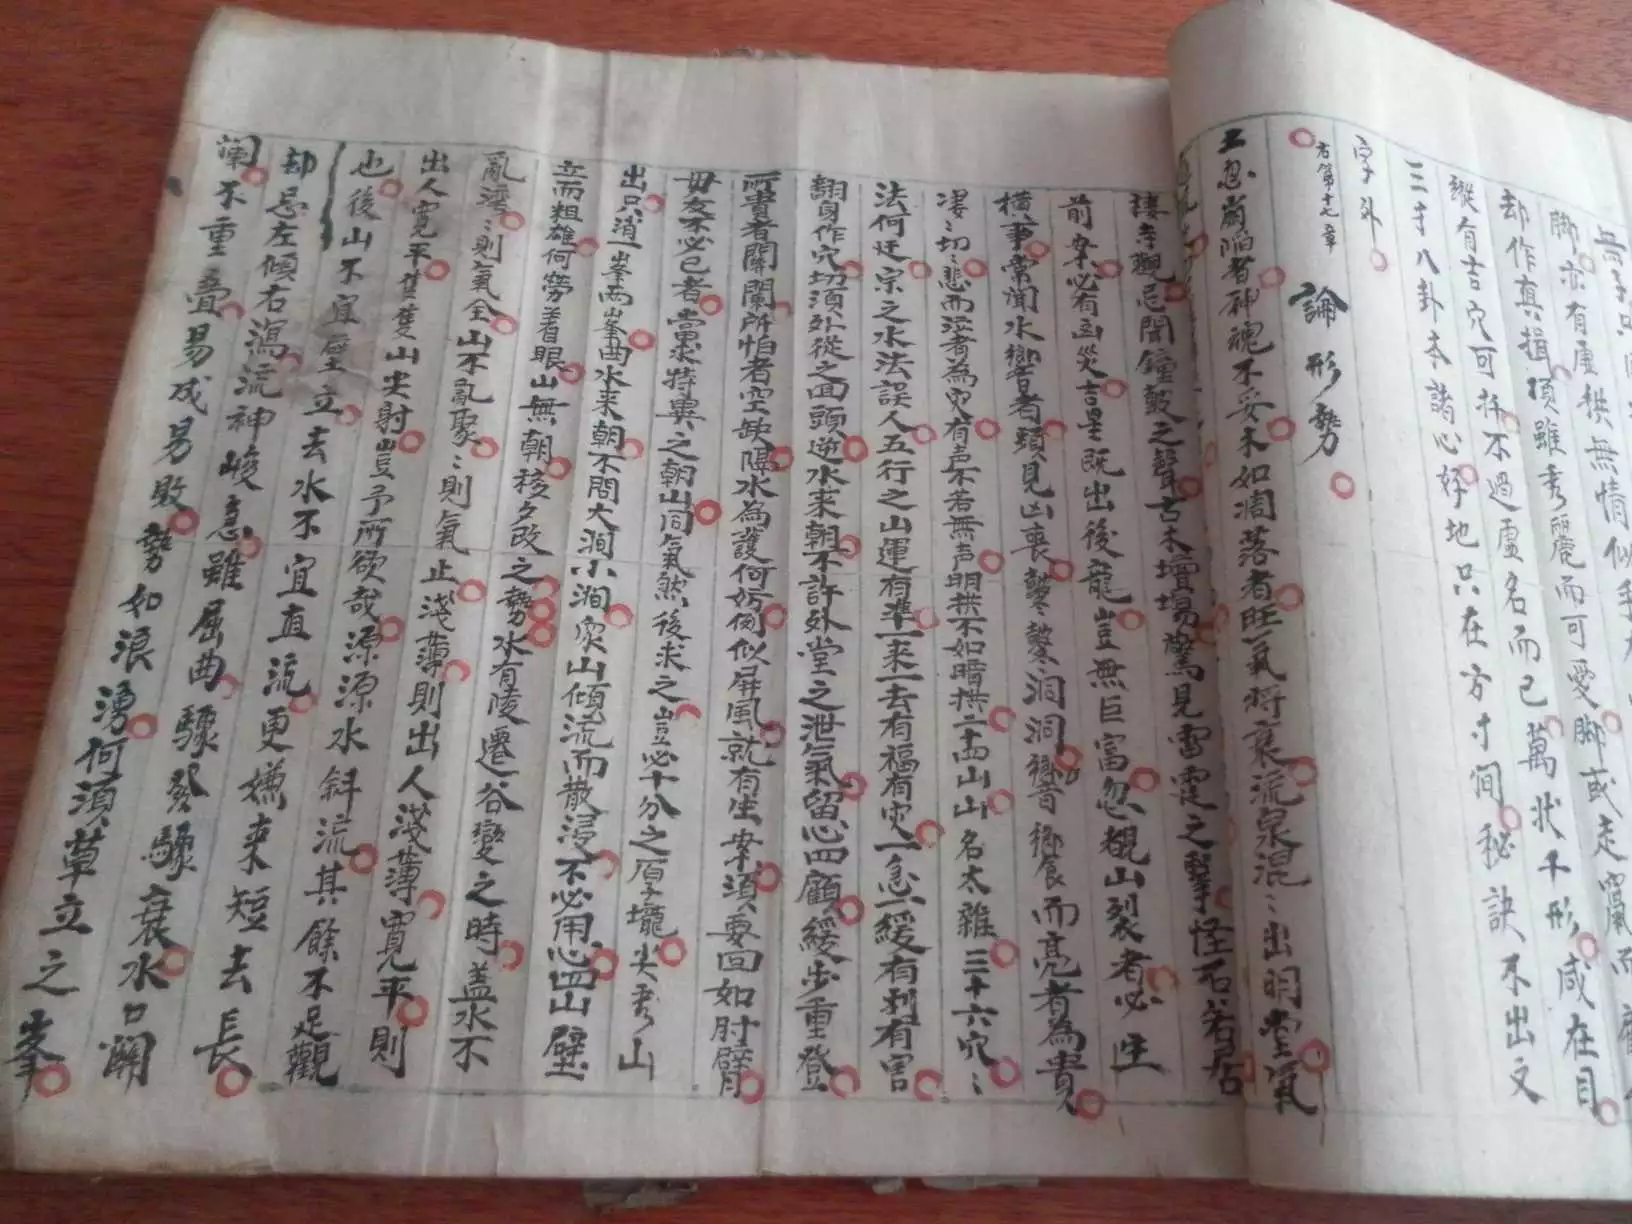 脚亦有虚拱無情似手
却作真揖頂雖秀麗而可愛脚或走竄而
縱有吉穴可扦不過虛名而已萬狀千形咸在目
三才八卦本諸心好地只在方寸間秘訣不出文
字外
右第十七章
論形勢
土忽崩陷者神魂不妥木如凋落者旺氣將衰流泉混〻出明堂氣
棲寺觀忌聞鐘鼓之聲古木壇場驚見雷霆之擊怪石若居
前案必有凶災吉星既出後龍豈無巨富忽覩山裂者必生
橫事常聞水響者頻見凶喪鼕鼕洞洞響音而亮者為貴
凄〻切〻悲而泣者為灾有声不若無声明拱不如暗拱二十四山山名太雜三十六穴〻
法何迂宗之水法誤人五行之山運有準一来一去有福有灾一急一緩有利有害
翻身作穴切須外從之回頭逆水来朝不許外堂之泄氣留心四顧緩步重登
所貴者關闌所怕者空缺隔水為護何妨倒似屏風就有生案須要回如肘臂
毋友不必己者當求特異之朝山同氣然後求之豈必十分之厚壠尖秀山
出只消一峯兩峯曲水来朝不問大澗小澗眾山傾流而散漫不必用心四山壁
立而粗雄何勞着眼山無朝移夕改之勢水有陵遷谷變之時蓋水不
亂湾〻則氣全山不亂聚〻則氣止淺薄則出人淺薄寬平則
出人寬平隻隻山尖射豈予所欲哉源源水斜流其餘不足觀
也後山不宜壁立去水不宜直流更嫌来短去長
却忌左傾右瀉流神峻急雖屈曲驟發驟衰水口關
闌不重疊易成易敗勢如浪湧何須草立之峯